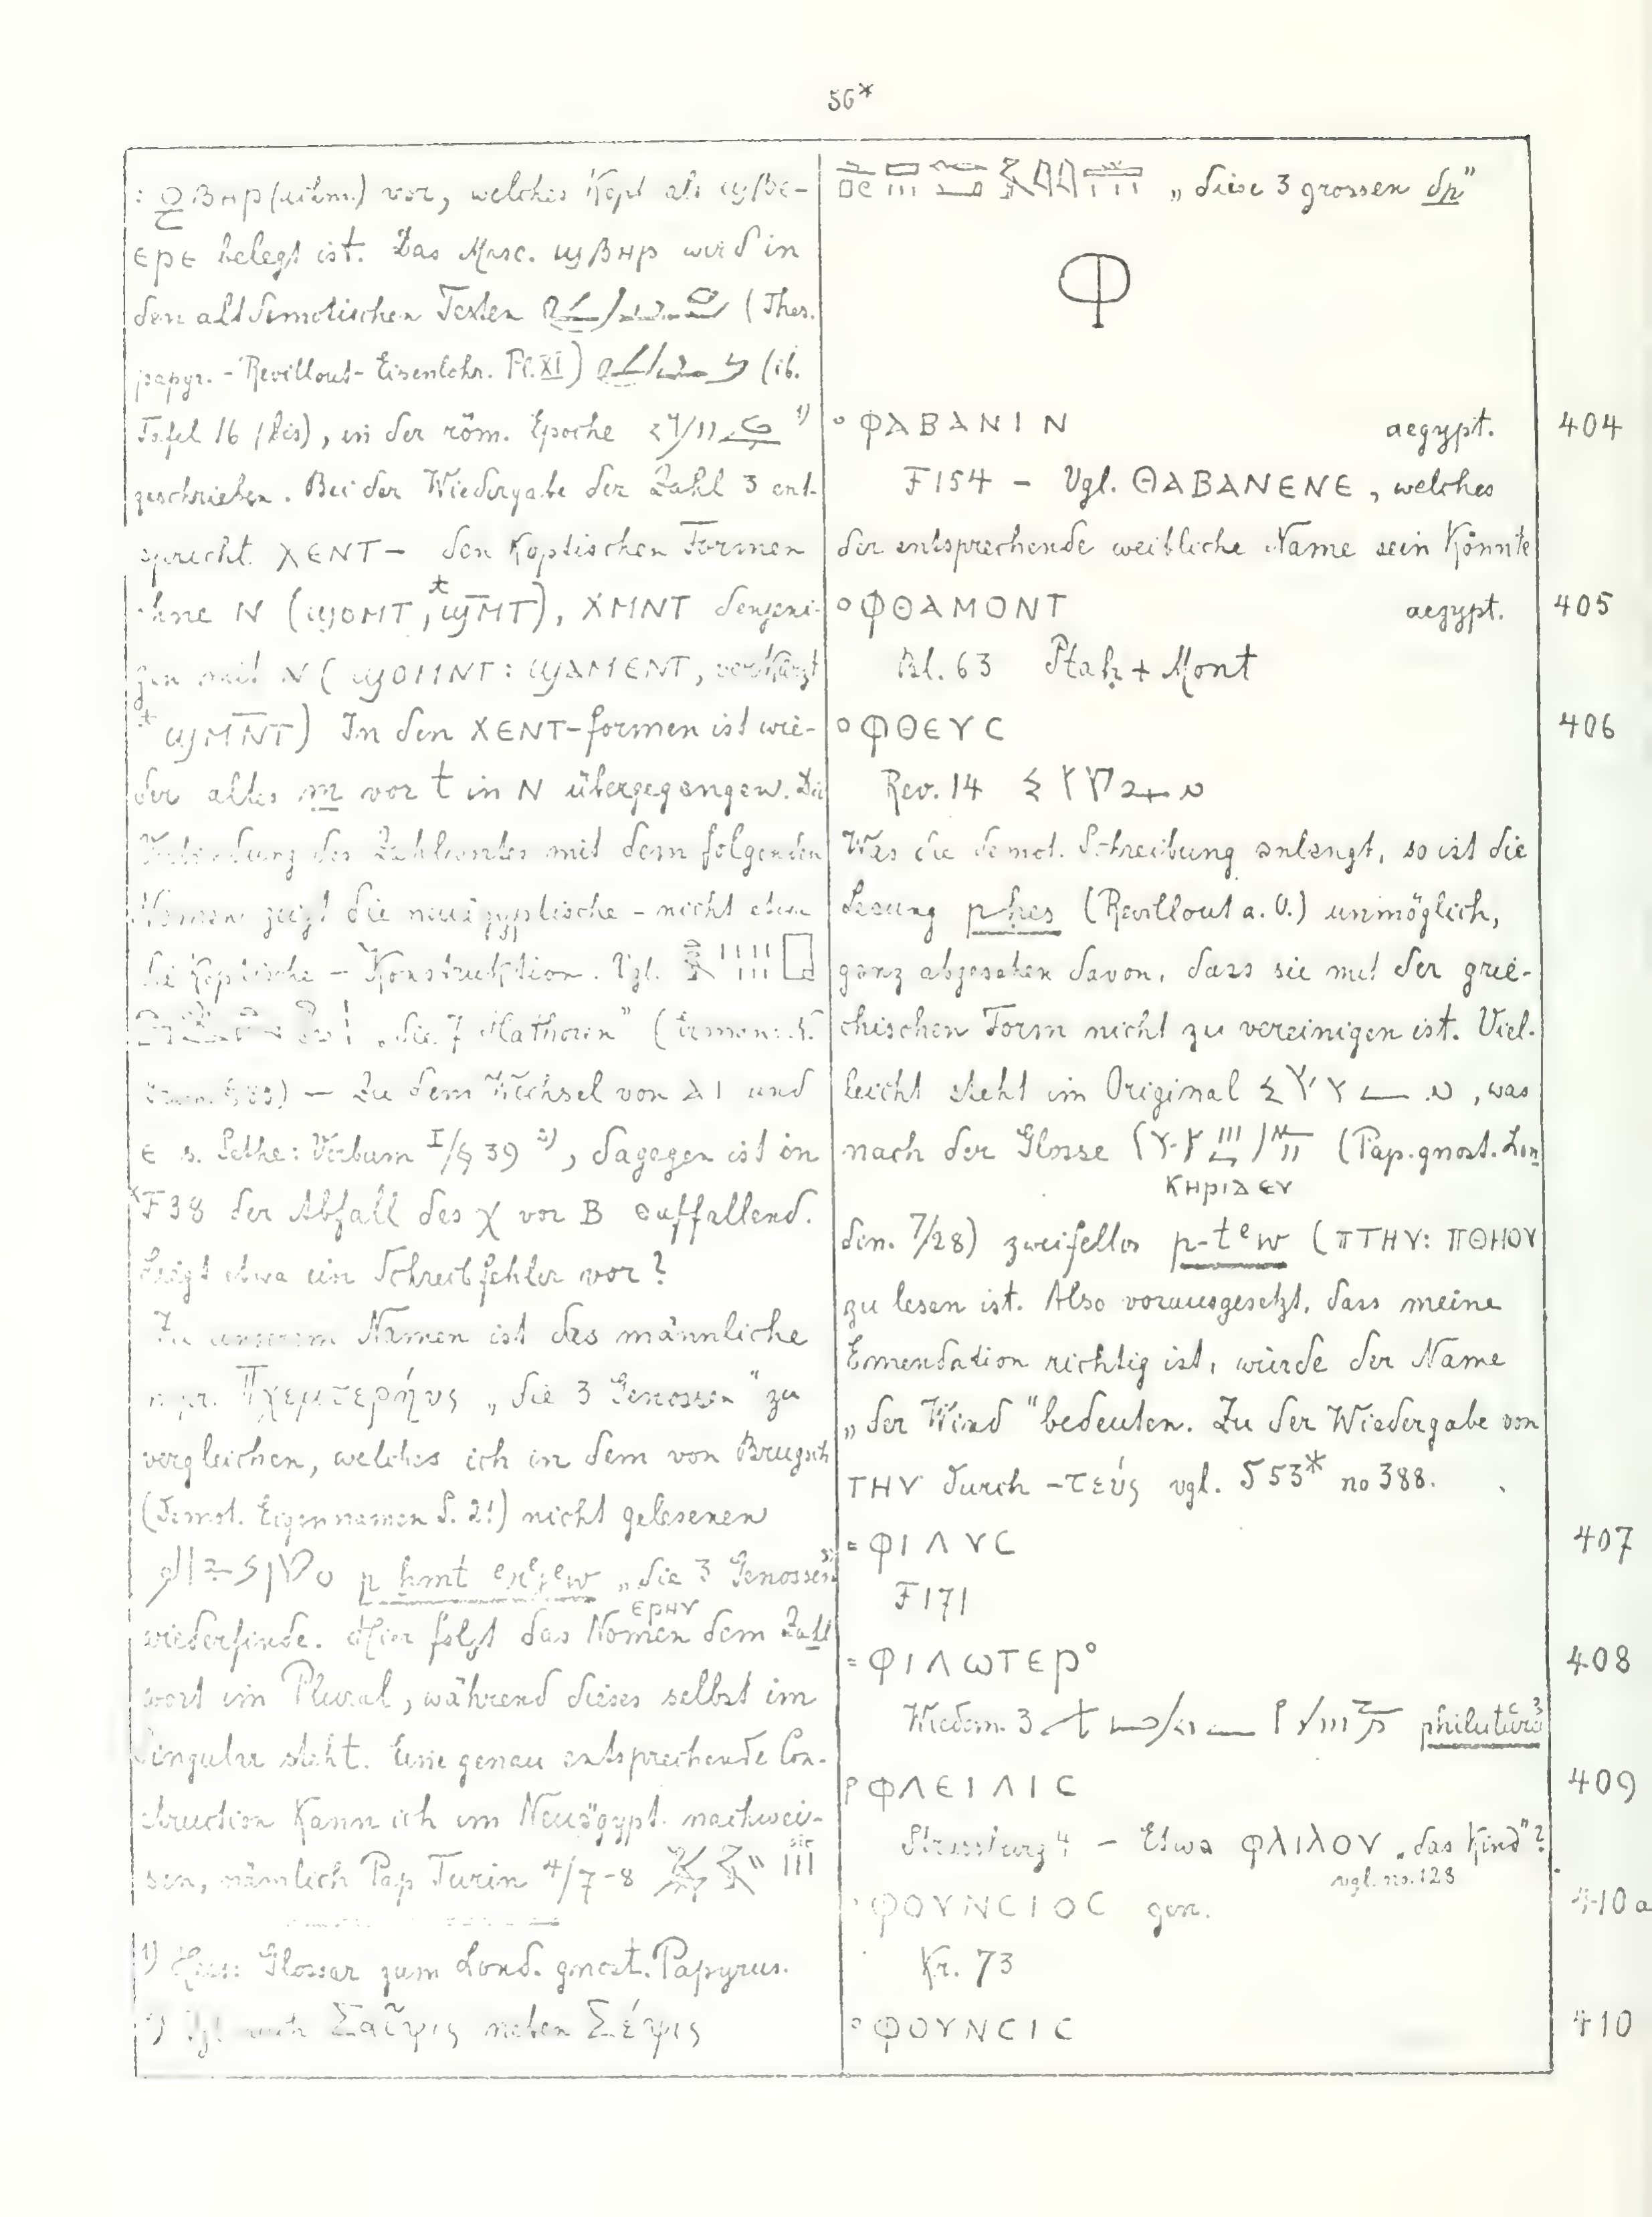 56*
vor, welches Kopt als
ⲉⲣⲉ belegt ist. Das Masc. ϣⲃⲏⲣ wird in
den altdemotischen Texten (Thes.
papyr. - Revillout - Eisenlohr. Pl. XI) (ib.
Tafel 16 (bis), in der röm. Epoche 1)
geschrieben. Bei der Wiedergabe der Zahl 3 ent-
spricht ΧΕΝΤ- den Koptischen Formen
ohne N (ϣⲟⲙⲧ, ϣⲙ̅ⲧ), ΧΜΝΤ denjeni-
gen mit N (ϣⲟⲙⲛⲧ: ϣⲁⲙⲉⲛⲧ, verkürzt
ϣⲙⲛ̅ⲧ) In den ΧΕΝΤ-formen ist wie-
der altes m vor t in N übergegangen. Die
Verbindung des Zahlwortes mit dem folgenden
Nomen zeigt die neuägyptische - nicht etwa
die Koptische - Konstruktion. Vgl.
„die 7 Hathoren" (Erman: N.
— Zu dem Wechsel von ⲁⲓ und
ⲉ s. Sethe: Verbum I/§ 39 2), dagegen ist in
F38 der Abfall des χ vor B auffallend.
Liegt etwa ein Schreibfehler vor?
Zu unserem Namen ist das männliche
n. pr. „die 3 Genossen" zu
vergleichen, welches ich in dem von Brugsch
(Demot. Eigennamen S. 21) nicht gelesenen
p hmt „die 3 Genossen"
ⲉⲣⲏⲩ
wiederfinde. Hier folgt das Nomen dem Zahl
wort im Plural, während dieses selbst im
Singular steht. Eine genau entsprechende Con-
struction kann ich im Neuägypt. nachwei-
sen, nämlich Pap Turin 4/7-8 sic
1) Hess: Glossar zum Lond. gnost. Papyrus.
2) Vgl. auch Σαῖψις neben Σέψις
„diese 3 grossen dp"
Φ
° ΦΑΒΑΝΙΝ aegypt. 404
F154 - Vgl. ΘΑΒΑΝΕΝΕ, welches
der entsprechende weibliche Name sein könnte
° ΦΘΑΜΟΝΤ aegypt. 405
Bl. 63 Ptaḥ + Mont
° ΦΘΕΥC 406
Rev. 14
Was die demot. Schreibung anlangt, so ist die
Lesung phes (Revillout a. O.) unmöglich,
ganz abgesehen davon, dass sie mit der grie-
chischen Form nicht zu vereinigen ist. Viel-
leicht steht im Original , was
nach der Glosse (Pap. gnost. Lon
ⲕⲏⲣⲓⲇⲉⲩ
don. 7/28) zweifellos p-tᵉw (ⲡⲧⲏⲩ: ⲡⲑⲏⲟⲩ
zu lesen ist. Also vorausgesetzt, dass meine
Emendation richtig ist, würde der Name
„der Wind" bedeuten. Zu der Wiedergabe von
ⲧⲏⲩ durch -τεύς vgl. S 53* no 388.
= ΦΙΛΥC 407
F171
= ΦΙΛωΤΕΡ° 408
Wiedem. 3
ΦΛΕΙΛΙC 409
Strassburg 4 - Etwa ⲫⲗⲓⲗⲟⲩ „das Kind"?
vgl. no. 128
° ΦΟΥΝCΙΟC gen. 410a
Kr. 73
° ΦΟΥΝCΙC 410